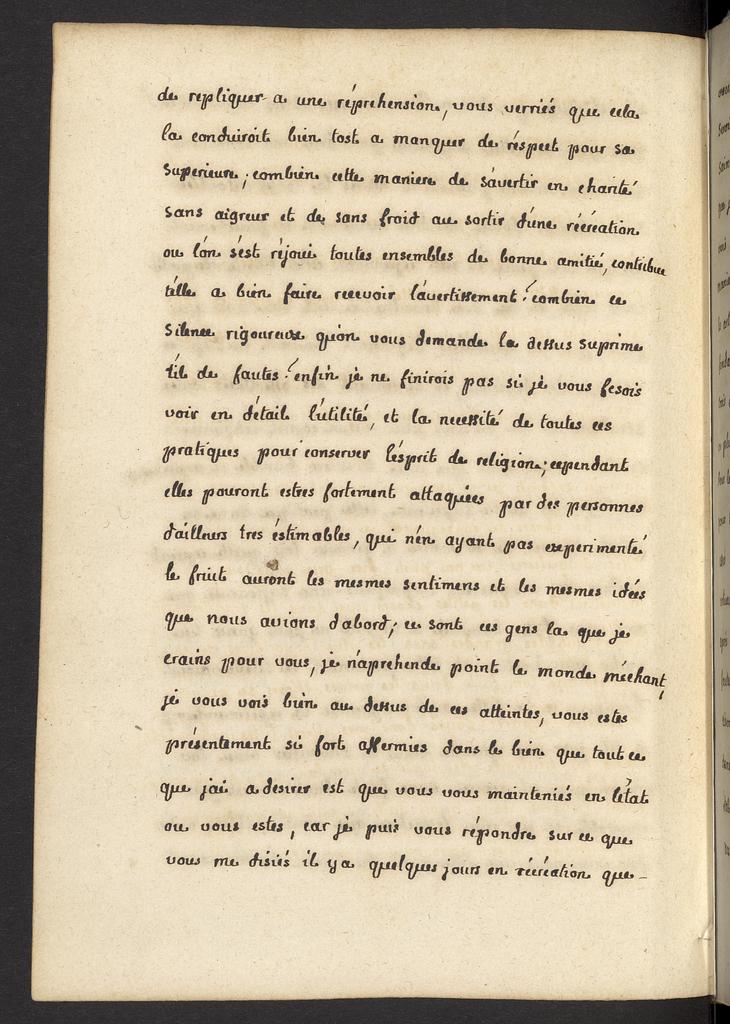 de repliquer a une répréhension, vous verriés que cela
la conduiroit bien tost a manquer de réspect pour sa
superieure; combien cette maniere de s'avertir en charité
sans aigreur et de sans froid au sortir d'une récréation
ou l'on s'est réjoui toutes ensembles de bonne amitié, contribue
t'elle a bien faire recevoir l'avertissement? combien ce
silence rigoureux qu'on vous demande la dessus suprime
t'il de fautes? enfin je ne finirois pas si je vous fesois
voir en détail l'utilité, et la necessité de toutes ces
pratiques pour conserver l'ésprit de religion; cependant
elles pouront estres fortement attaquées par des personnes
d'ailleurs tres éstimables, qui n'en ayant pas experimenté
le fruit auront les mesmes sentimens et les mesmes idées
que nous avions d'abord; ce sont ces gens la que je
crains pour vous, je n'aprehende point le monde méchant,
je vous vois bien au dessus de ces atteintes, vous estes
présentement si fort affermies dans le bien que tout ce
que j'ai a desirer est que vous vous mainteniés en l'état
ou vous estes, car je puis vous répondre sur ce que
vous me disiés il y a quelques jours en récréation que-